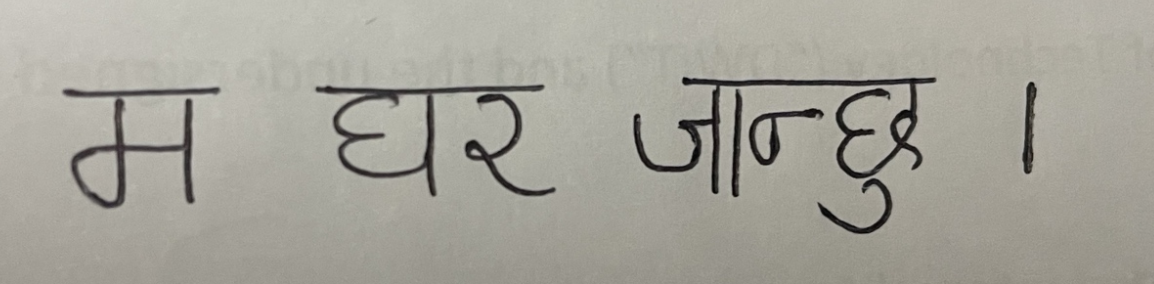 म घर जान्छु ।